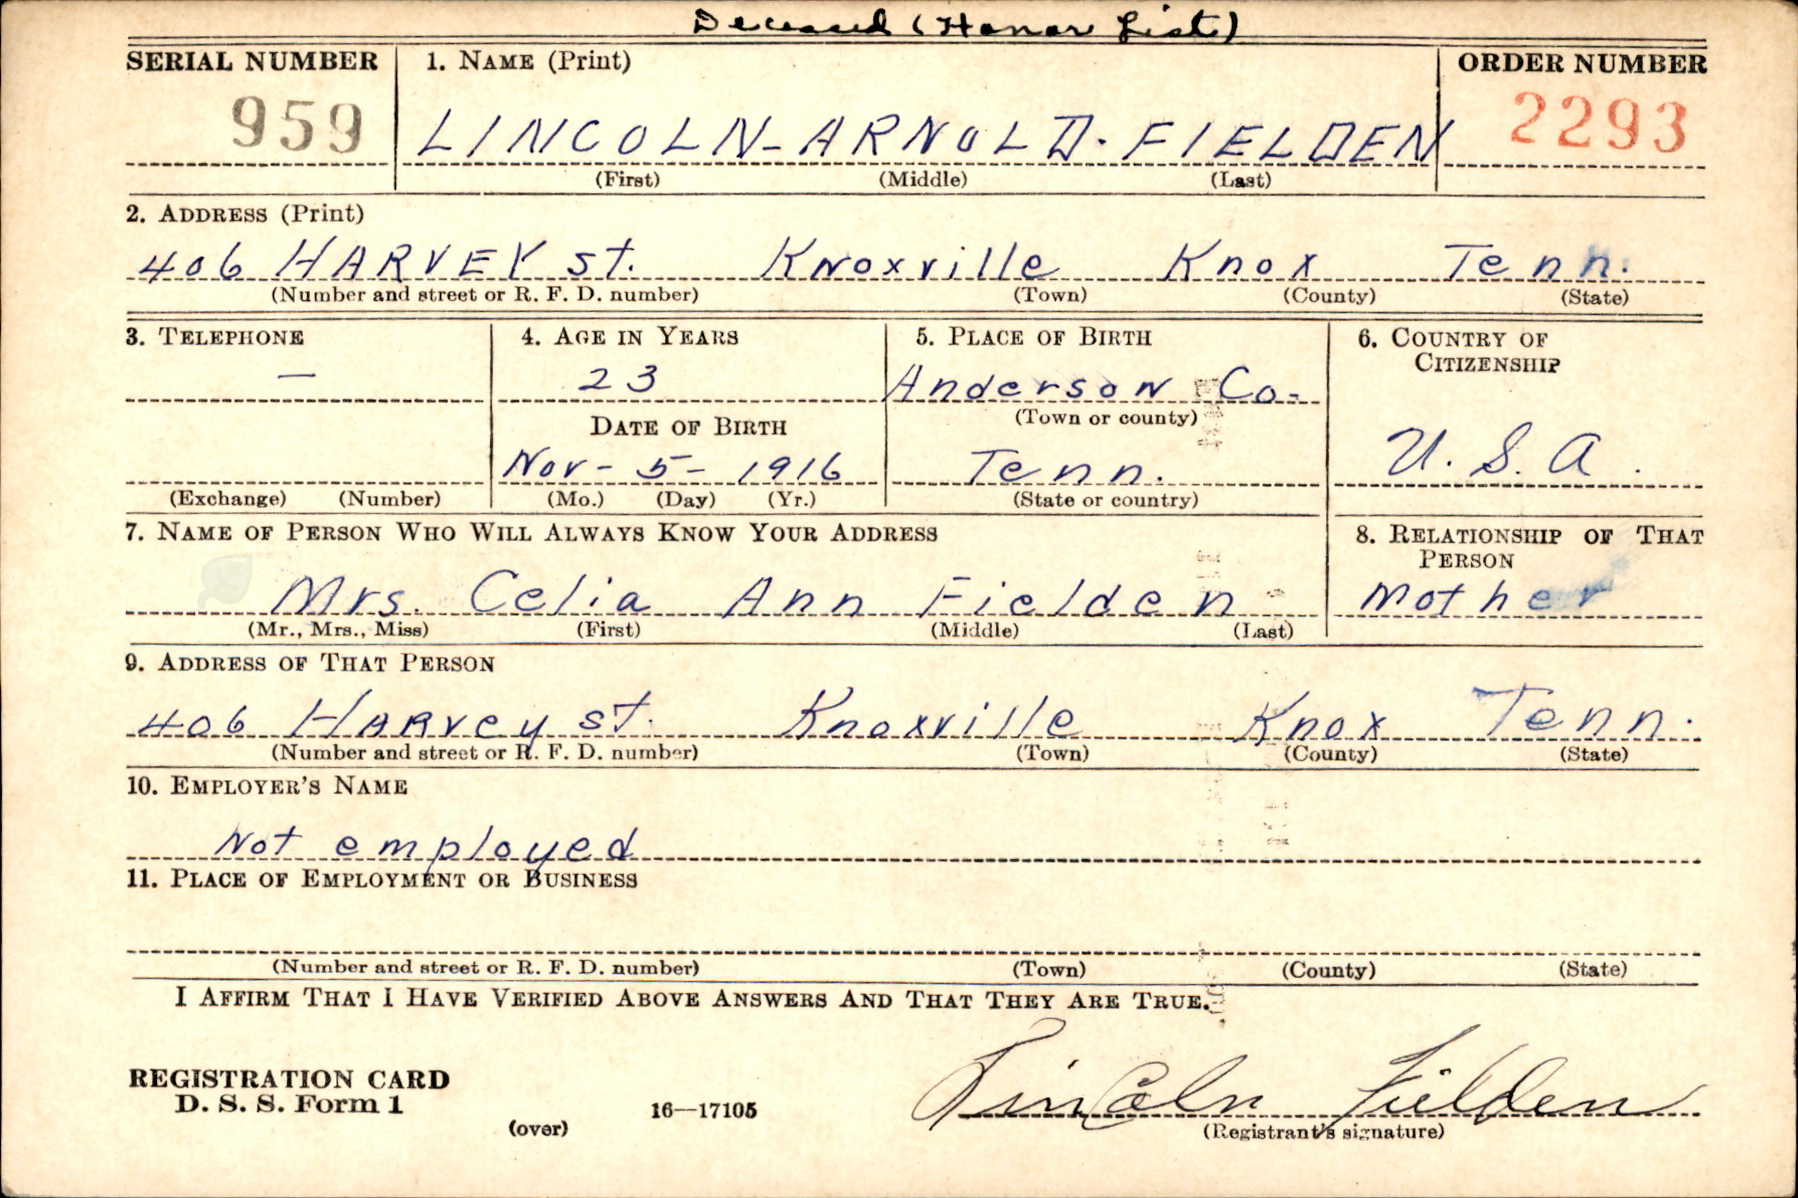 Deceased (Honor List)
SERIAL NUMBER 1. NAME (Print) ORDER NUMBER
959 LINCOLN-ARNOLD. FIELDEN 2293
(First) (Middle) (Last)
2. ADDRESS (Print)
406 HARVEY St. Knoxville Knox Tenn.
(Number and street or R. F. D. number) (Town) (County) (State)
3. TELEPHONE 4. AGE IN YEARS 5. PLACE OF BIRTH 6. COUNTRY OF CITIZENSHIP
— 23 Anderson Co.
(Town or county)
DATE OF BIRTH
Nov - 5 - 1916 Tenn. U. S. A.
(Exchange) (Number) (Mo.) (Day) (Yr.) (State or country)
7. NAME OF PERSON WHO WILL ALWAYS KNOW YOUR ADDRESS 8. RELATIONSHIP OF THAT PERSON
Mrs. Celia Ann Fielden Mother
(Mr., Mrs., Miss) (First) (Middle) (Last)
9. ADDRESS OF THAT PERSON
406 HARVey St. Knoxville Knox Tenn.
(Number and street or R. F. D. number) (Town) (County) (State)
10. EMPLOYER'S NAME
Not employed
11. PLACE OF EMPLOYMENT OR BUSINESS
(Number and street or R. F. D. number) (Town) (County) (State)
I AFFIRM THAT I HAVE VERIFIED ABOVE ANSWERS AND THAT THEY ARE TRUE.
REGISTRATION CARD
D. S. S. Form 1 Lincoln Fielden
(over) 16—17105 (Registrant's signature)